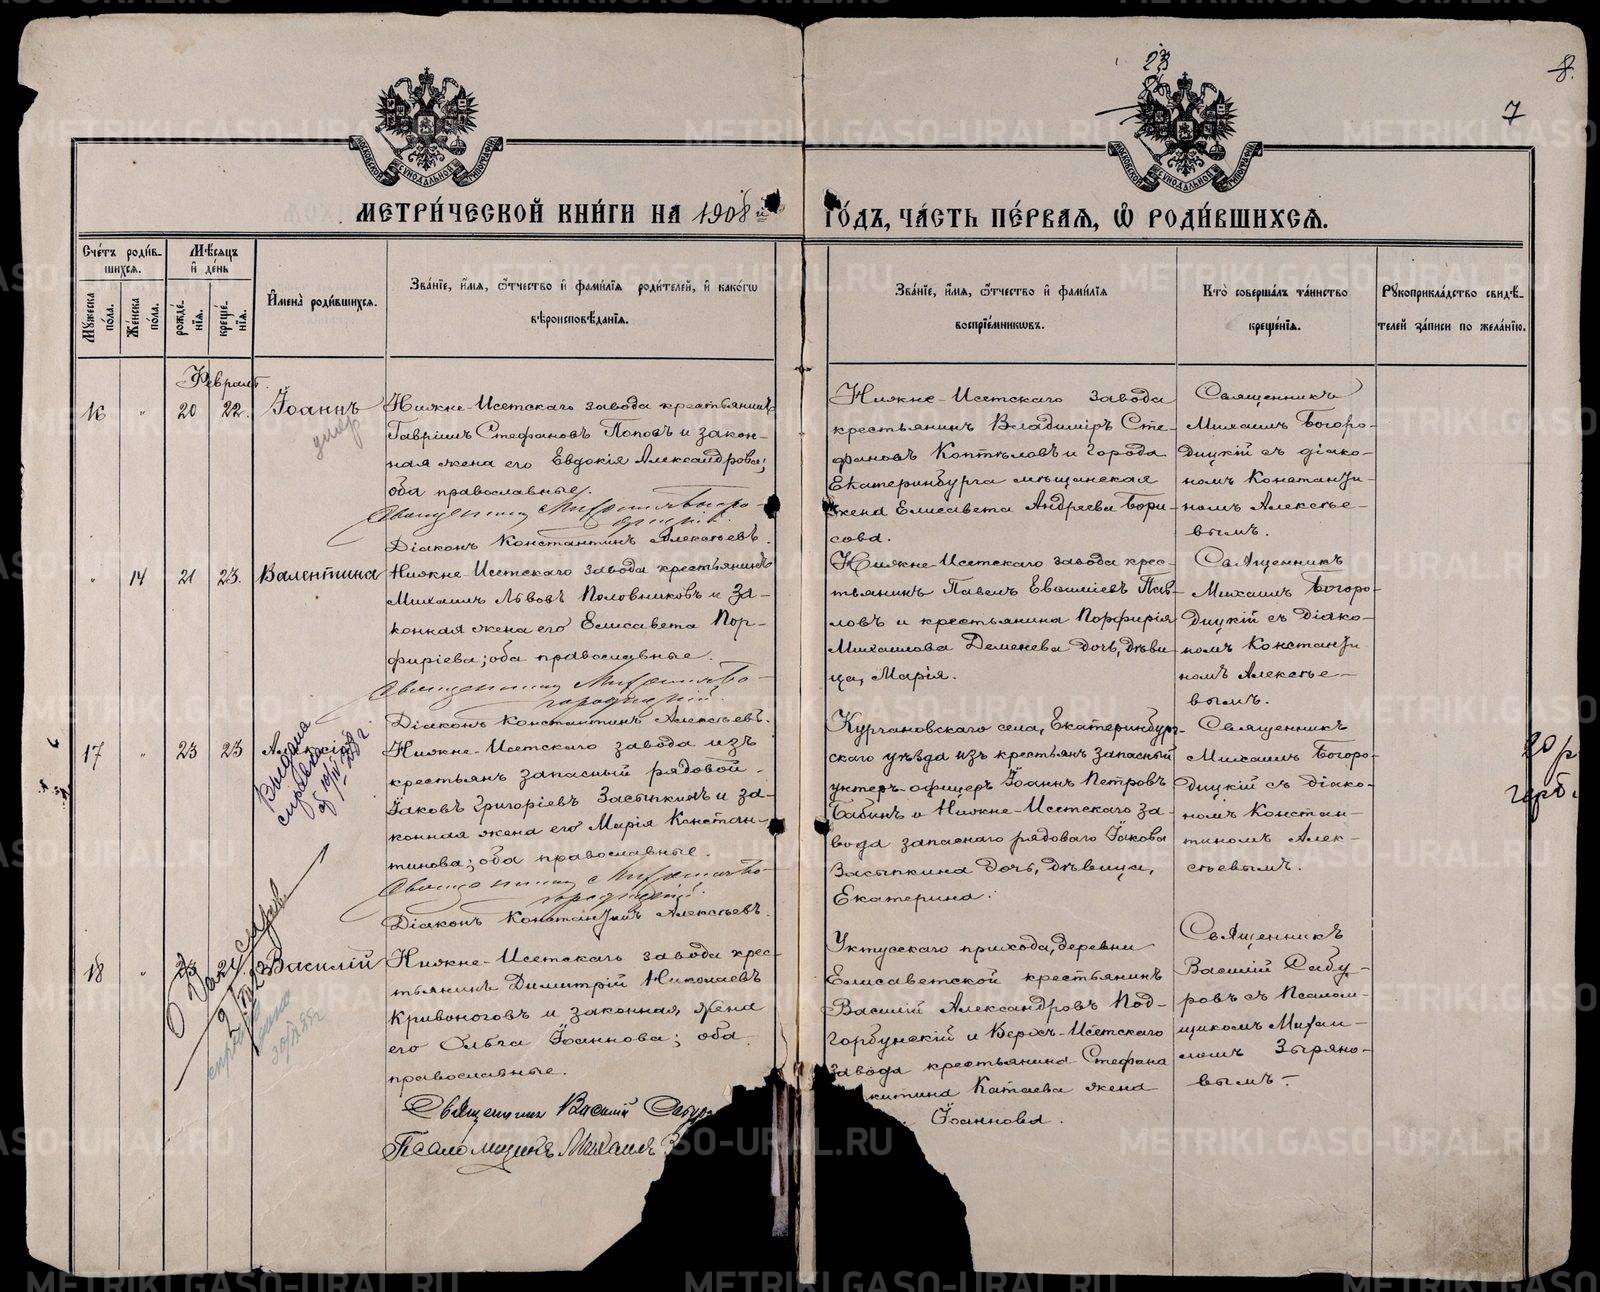 23
8.
7
МОСКОВСКОЙ СУНОДАЛЬНОЙ ТИПОГРАФІИ
МОСКОВСКОЙ СУНОДАЛЬНОЙ ТИПОГРАФІИ
МЕТРИ́ЧЕСКОЙ КНИ́ГИ НА 1908 й
ГО́ДЪ, ЧА́СТЬ ПЕ́РВАЯ, Ѡ РОДИ́ВШИХСЯ.
Сче́тъ роди́в-
шихся.
Мѣ́сяцъ
и҆ де́нь
Мꙋ́жеска по́ла.
Же́нска по́ла.
рожде́нїя.
креще́нїя.
И҆мена̀ роди́вшихся.
Зва́нїе, и҆́мя, ѻ҆́тчество и҆ фамѝлїя роди́телей, и҆ како́гѡ
вѣроисповѣ́данїя.
Зва́нїе, и҆́мя, ѻ҆́тчество и҆ фамѝлїя
воспрїе́мникѡвъ.
Кто̀ соверша́лъ та́инство
креще́нїя.
Рꙋкоприкла́дство свидѣ́-
телей за́писи по жела́нїю.
Февраль.
16 " 20 22. Іоаннъ
умер
Нижне-Исетскаго завода крестьянинъ
Гавріилъ Стефановъ Поповъ и закон-
ная жена его Евдокія Александрова;
оба православные.
Священникъ Михаилъ Богоро-
дицкій.
Діаконъ Константинъ Алексѣевъ.
Нижне-Исетскаго завода
крестьянинъ Владиміръ Сте-
фановъ Коптѣловъ и города
Екатеринбурга мѣщанская
жена Елисавета Андреева Бори-
сова.
Священникъ
Михаилъ Богоро-
дицкій съ діако-
номъ Константи-
номъ Алексѣе-
вымъ.
" 14 21 23. Валентина
Нижне-Исетскаго завода крестьянинъ
Михаилъ Львовъ Половниковъ и за-
конная жена его Елисавета Пор-
фиріева; оба православные.
Священникъ Михаилъ Бо-
городицкій.
Діаконъ Константинъ Алексѣевъ.
Нижне-Исетскаго завода крес-
тьянинъ Павелъ Евѳиміевъ Пав-
ловъ и крестьянина Порфирія
Михаилова Деменева дочь, дѣви-
ца, Марія.
Священникъ
Михаилъ Богоро-
дицкій съ діако-
номъ Константи-
номъ Алексѣе-
вымъ.
17 " 23 23 Алексій
Выдана
справка
Нижне-Исетскаго завода изъ
крестьянъ запасный рядовой
Іаковъ Григоріевъ Засыпкинъ и за-
конная жена его Марія Констан-
тинова; оба православные.
Священникъ Михаилъ Бо-
городицкій.
Діаконъ Константинъ Алексѣевъ.
Кургановскаго села, Екатеринбург-
скаго уѣзда изъ крестьянъ запасный
унтеръ-офицеръ Іоаннъ Петровъ
Бабинъ и Нижне-Исетскаго за-
вода запаснаго рядоваго Іакова
Засыпкина дочь, дѣвица,
Екатерина.
Священникъ
Михаилъ Богоро-
дицкій съ діако-
номъ Констан-
тиномъ Алек-
сѣевымъ.
20 р
герб.
18 " 23 Василій
Нижне-Исетскаго завода крес-
тьянинъ Димитрій Николаевъ
Кривоноговъ и законная жена
его Ольга Іоаннова; оба
православные.
Священникъ Василій
Псаломщикъ Михаилъ
Уктусскаго прихода, деревни
Елисаветской крестьянинъ
Василій Александровъ Под-
горбунскій и Верхъ-Исетскаго
завода крестьянина Стефана
Катаева жена
Іоаннова.
Священникъ
Василій Сабу-
ровъ съ Псалом-
щикомъ Михаи-
ломъ Зыряно-
вымъ.
METRIKI.GASO-URAL.RU